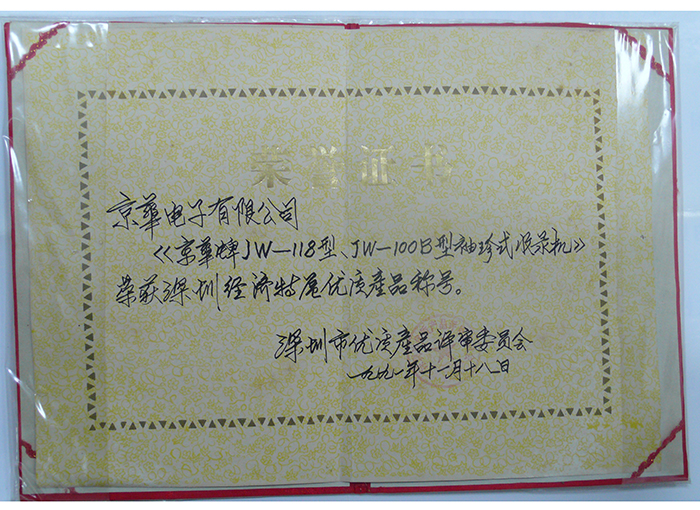 荣誉证书
京華电子有限公司
《京華牌JW-118型、JW-100B型袖珍式收录机》
荣获深圳经济特區优质產品称号。
深圳市优质產品评审委员会
一九九一年十一月十八日